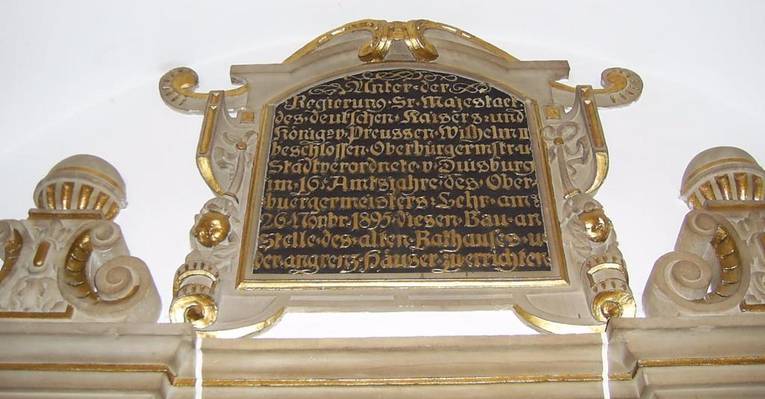 Unter·der
Regierung·Sr·Majestaet
des·deutschen·Kaisers·und
Königs·v·Preussen·Wilhelm II
beschlossen·Oberbürgermstr·u
Stadtverordnete·v·Duisburg
im·16·Amtsjahre·des·Ober
buergermeisters·Lehr·am
26·Novbr·1895·diesen·Bau·an
Stelle·des·alten·Rathauses·u
der·angrenz·Häuser·zu·errichten